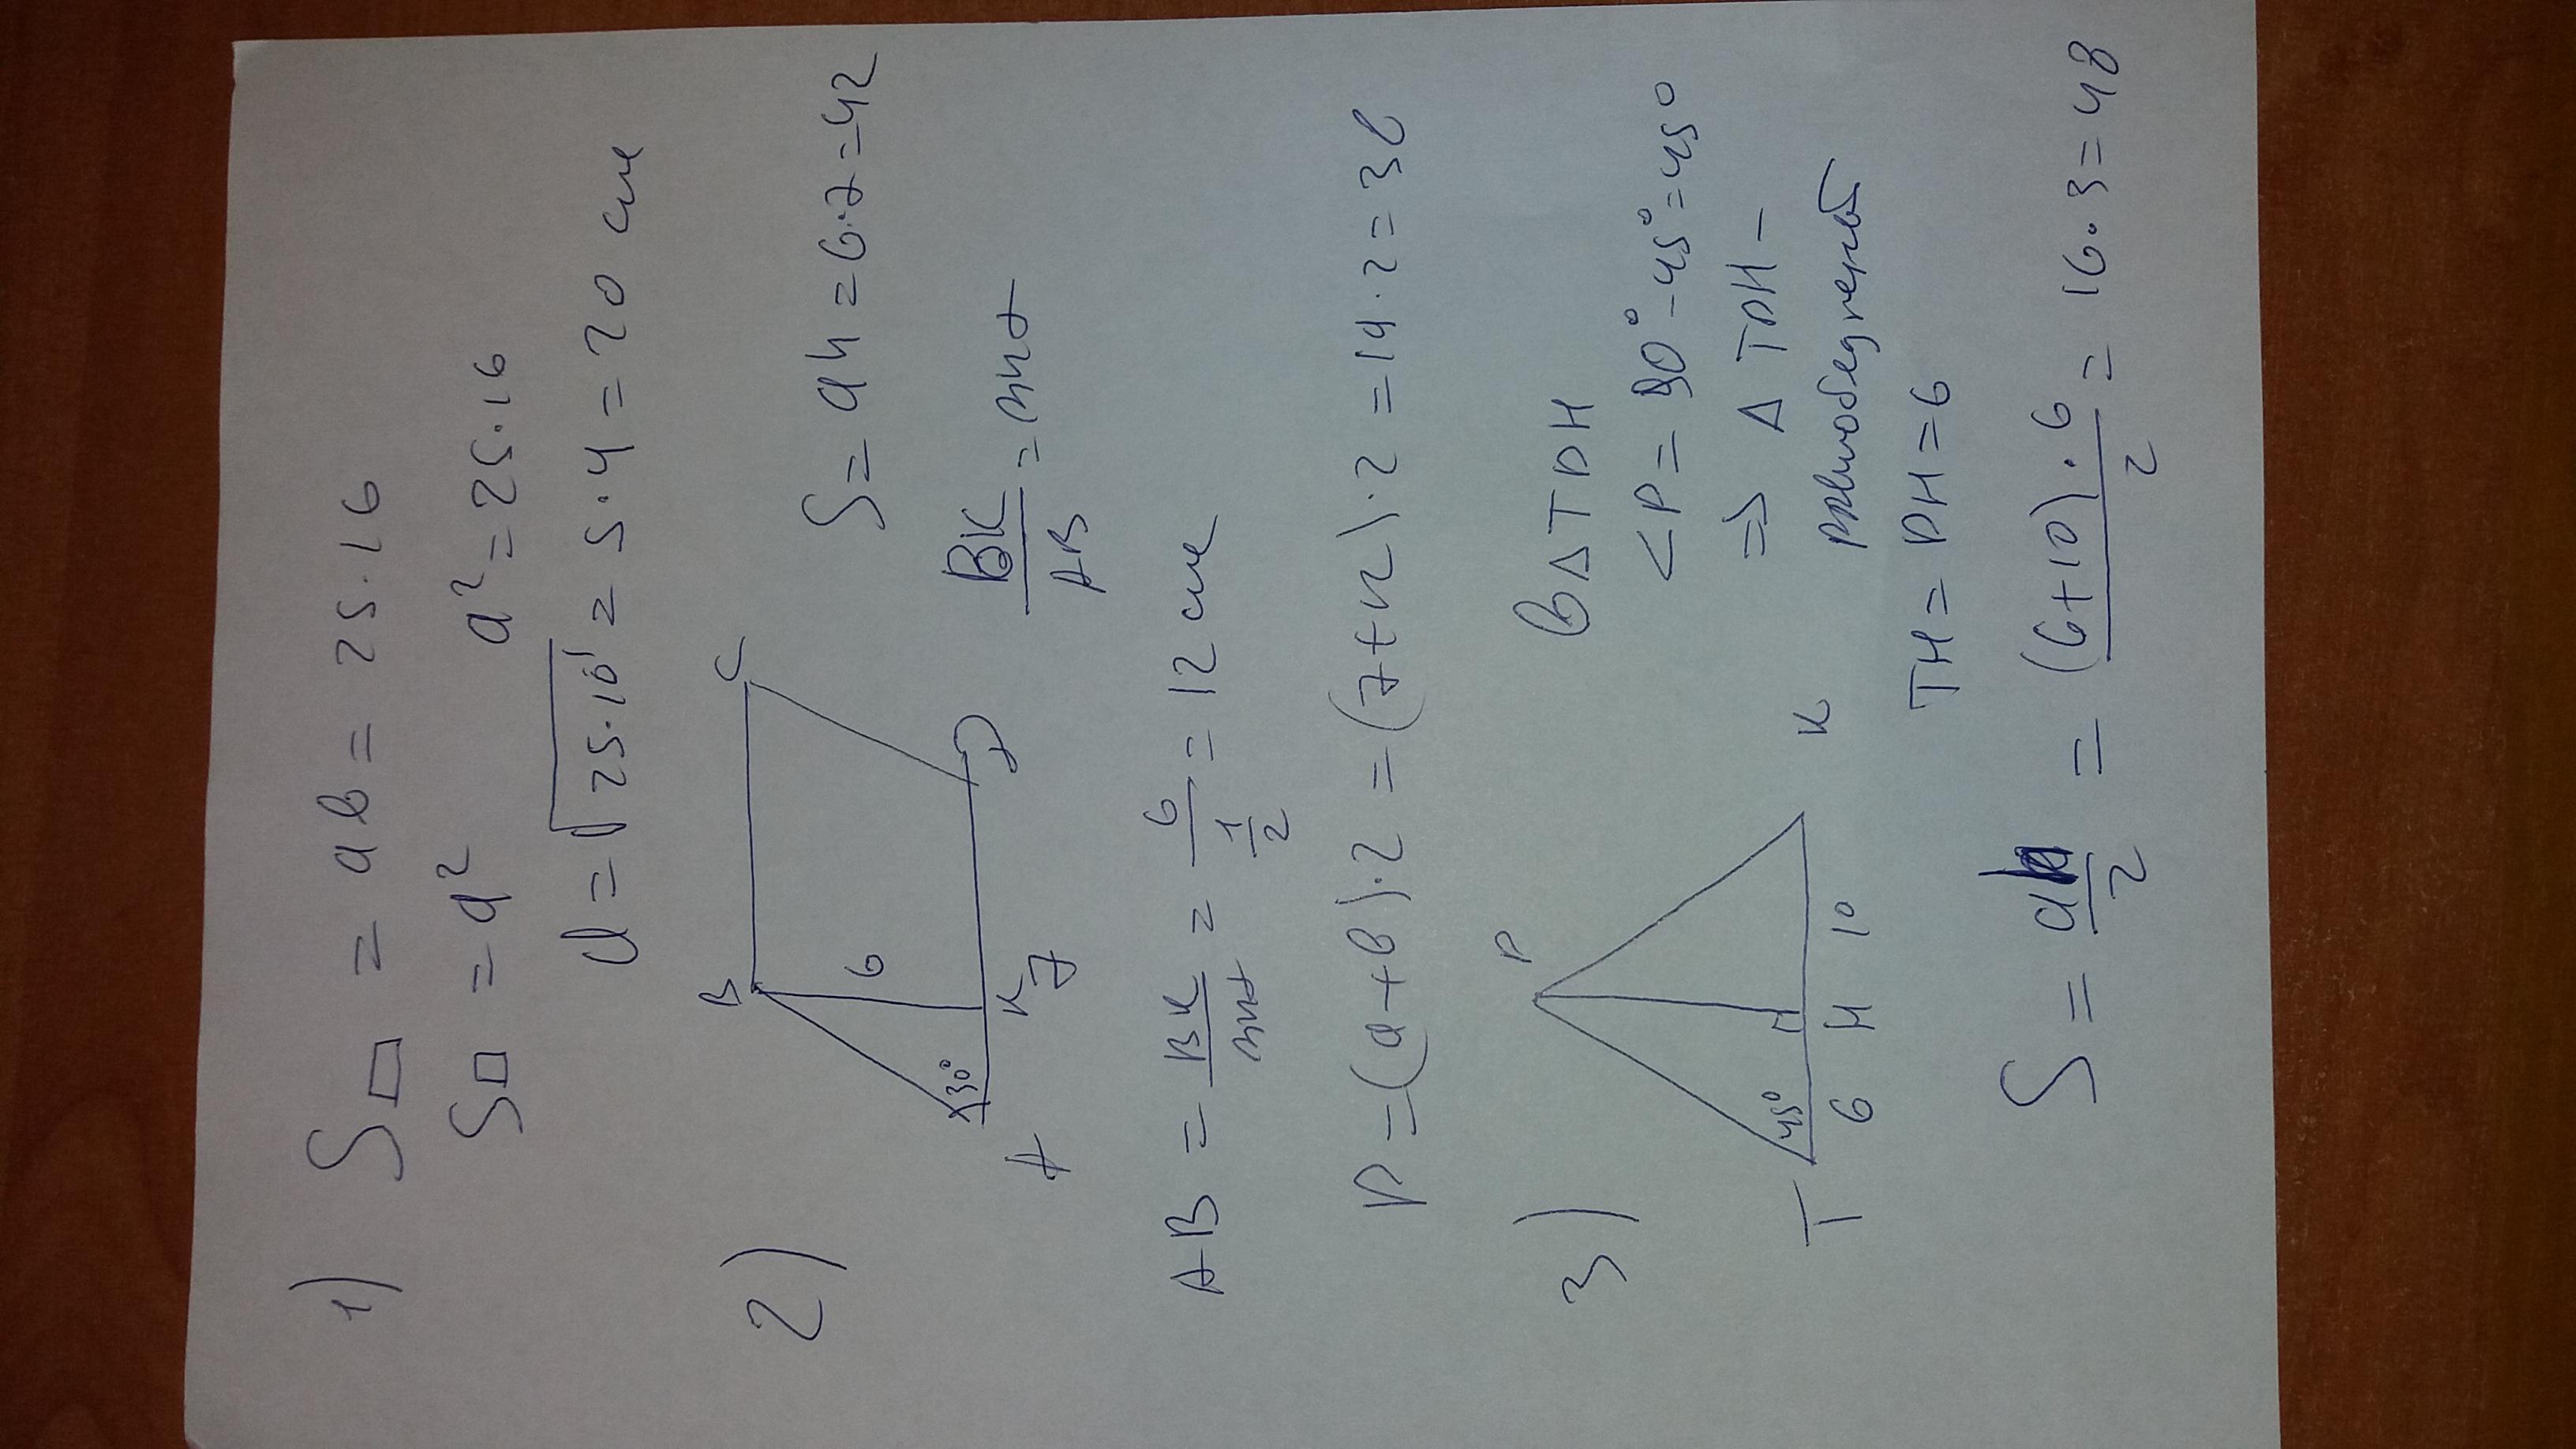 1) S□ = ab = 25·16
S□ = a² a² = 25·16
a = √25·16 = 5·4 = 20 см
2) B C
6
30°
A K D
7
S = ah = 6·7 = 42
BK/AB = sin α
AB = BK/sin α = 6/(1/2) = 12 см
P = (a+b)·2 = (7+12)·2 = 19·2 = 38
3) P
45°
T 6 H 10 K
В ΔTPH
<P = 90° - 45° = 45°
=> Δ TPH -
равнобедренный
TH = PH = 6
S = ah/2 = (6+10)·6/2 = 16·3 = 48